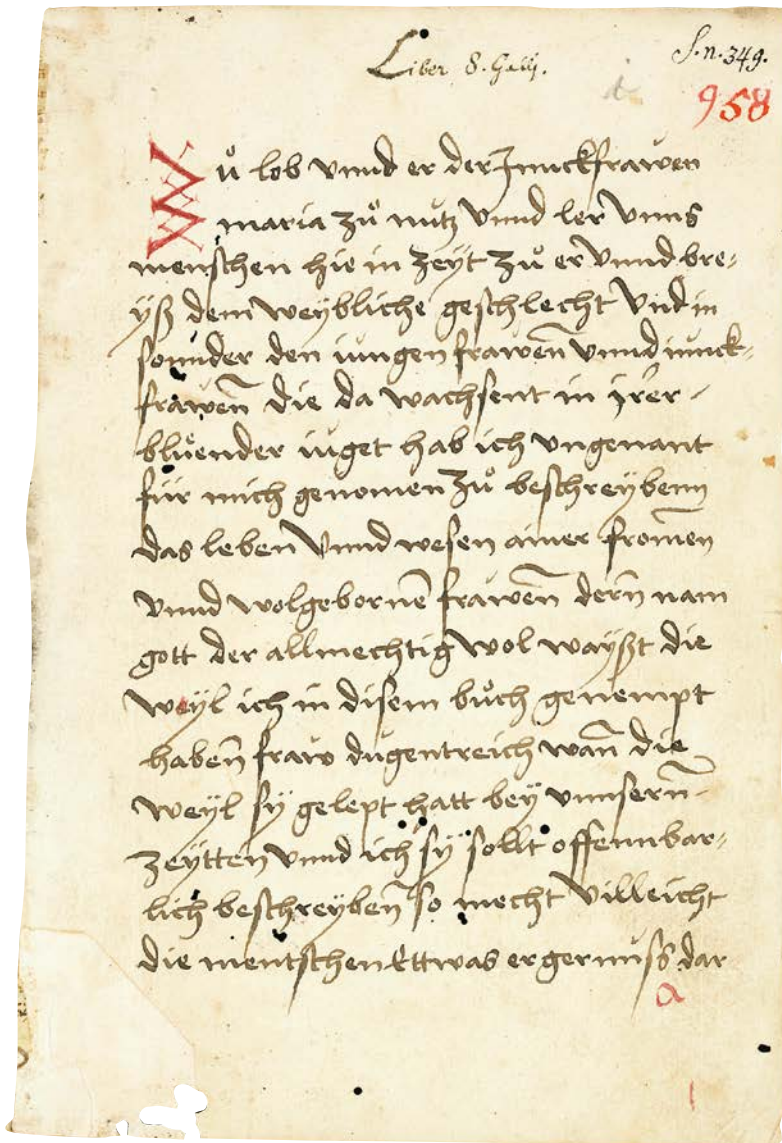 Liber S. Galli.
S. n. 349.
958
Zů lob vnnd er der Junckfrawen
maria zů nutz vnnd ler vnns
menschen hie in zeyt zů er vnnd bre-
yß dem weybliche geschlecht vnd in
sonnder den iungen frawen̄ vnnd iunck-
frawen̄ die da wachsent in jrer
blůender iuget hab ich vngenant
für mich genomen zů beschreybenn
das leben vnnd wesen ainer fromen̄
vnnd wolgebornē frawen̄ dern̄ nam
gott der allmechtig wol wayßt die
weyl ich in disem bůch genempt
haben̄ fraw dugentreich wan̄ die
weyl sÿ gelept hatt beÿ vnnsern̄
zeÿtten vnnd ich sÿ sollt offennbar-
lich beschreyben̄ so mecht villeicht
die mentschen ettwas ergernuss dar
a